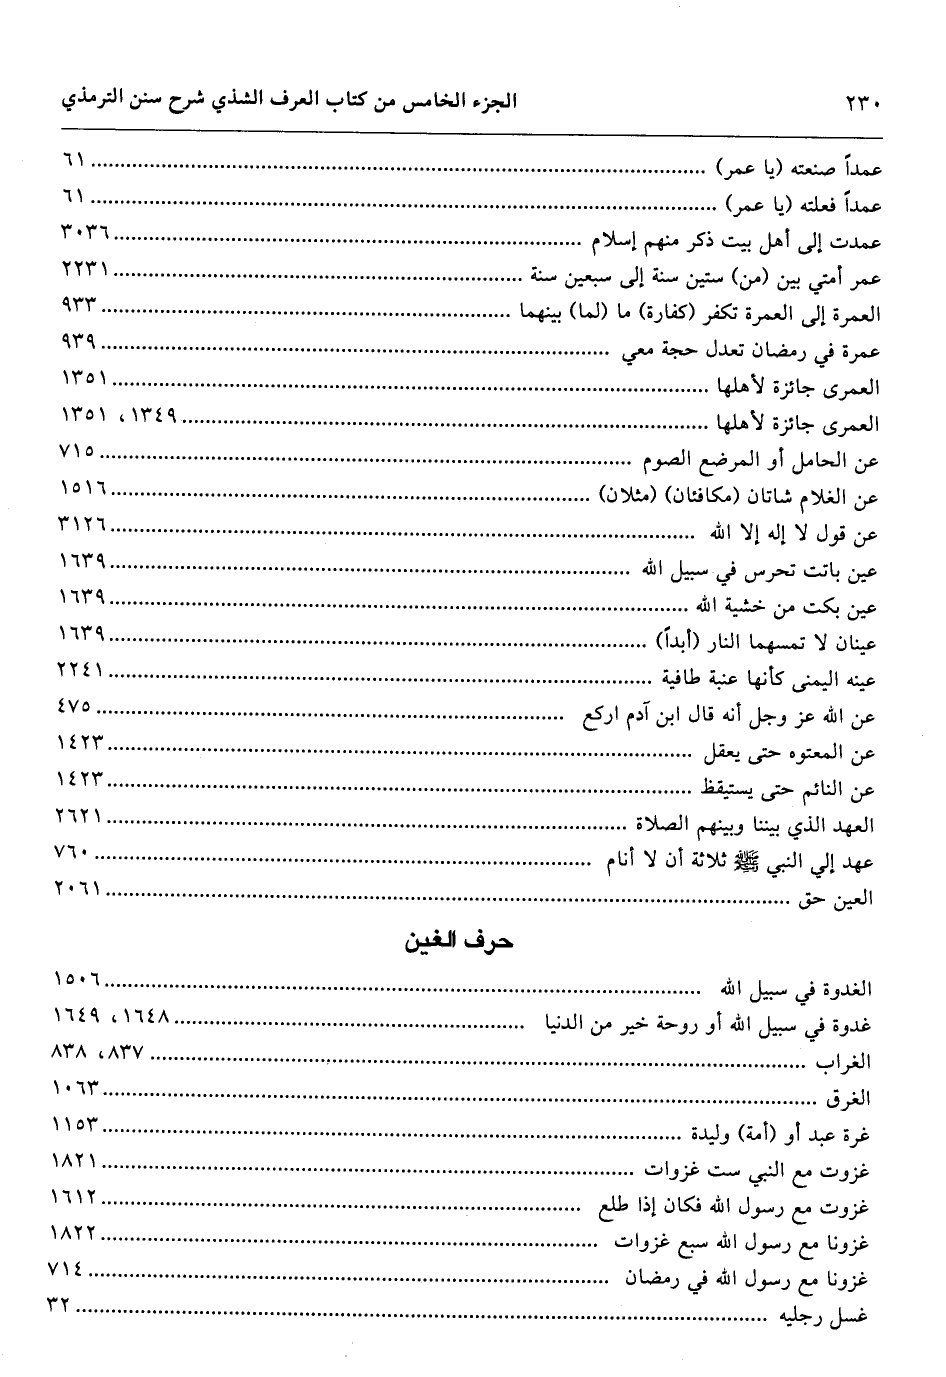 ٢٣٠ الجزء الخامس من كتاب العرف الشذي شرح سنن الترمذي
عمداً صنعته (يا عمر) ........ ٦١
عمداً فعلته (يا عمر) ........ ٦١
عمدت إلى أهل بيت ذكر منهم إسلام ........ ٣٠٣٦
عمر أمتي بين (من) ستين سنة إلى سبعين سنة ........ ٢٢٣١
العمرة إلى العمرة تكفر (كفارة) ما (لما) بينهما ........ ٩٣٣
عمرة في رمضان تعدل حجة معي ........ ٩٣٩
العمرى جائزة لأهلها ........ ١٣٥١
العمرى جائزة لأهلها ........ ١٣٤٩، ١٣٥١
عن الحامل أو المرضع الصوم ........ ٧١٥
عن الغلام شاتان (مكافئان) (مثلان) ........ ١٥١٦
عن قول لا إله إلا الله ........ ٣١٢٦
عين باتت تحرس في سبيل الله ........ ١٦٣٩
عين بكت من خشية الله ........ ١٦٣٩
عينان لا تمسهما النار (أبداً) ........ ١٦٣٩
عينه اليمنى كأنها عنبة طافية ........ ٢٢٤١
عن الله عز وجل أنه قال ابن آدم اركع ........ ٤٧٥
عن المعتوه حتى يعقل ........ ١٤٢٣
عن النائم حتى يستيقظ ........ ١٤٢٣
العهد الذي بيننا وبينهم الصلاة ........ ٢٦٢١
عهد إلي النبي ﷺ ثلاثة أن لا أنام ........ ٧٦٠
العين حق ........ ٢٠٦١
حرف الغين
الغدوة في سبيل الله ........ ١٥٠٦
غدوة في سبيل الله أو روحة خير من الدنيا ........ ١٦٤٨، ١٦٤٩
الغراب ........ ٨٣٧، ٨٣٨
الغرق ........ ١٠٦٣
غرة عبد أو (أمة) وليدة ........ ١١٥٣
غزوت مع النبي ست غزوات ........ ١٨٢١
غزوت مع رسول الله فكان إذا طلع ........ ١٦١٢
غزونا مع رسول الله سبع غزوات ........ ١٨٢٢
غزونا مع رسول الله في رمضان ........ ٧١٤
غسل رجليه ........ ٣٢